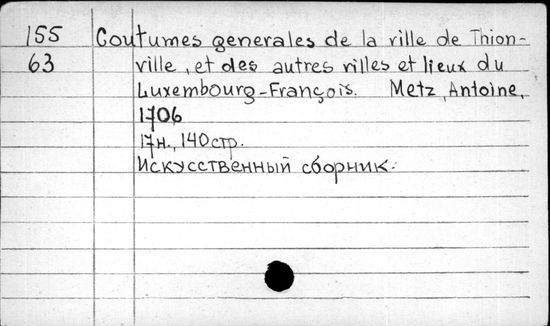 155 Coutumes generales de la ville de Thion-
63 ville, et des autres villes et lieux du
Luxembourg-François. Metz, Antoine,
1706
17н., 140стр.
Искусственный сборник.